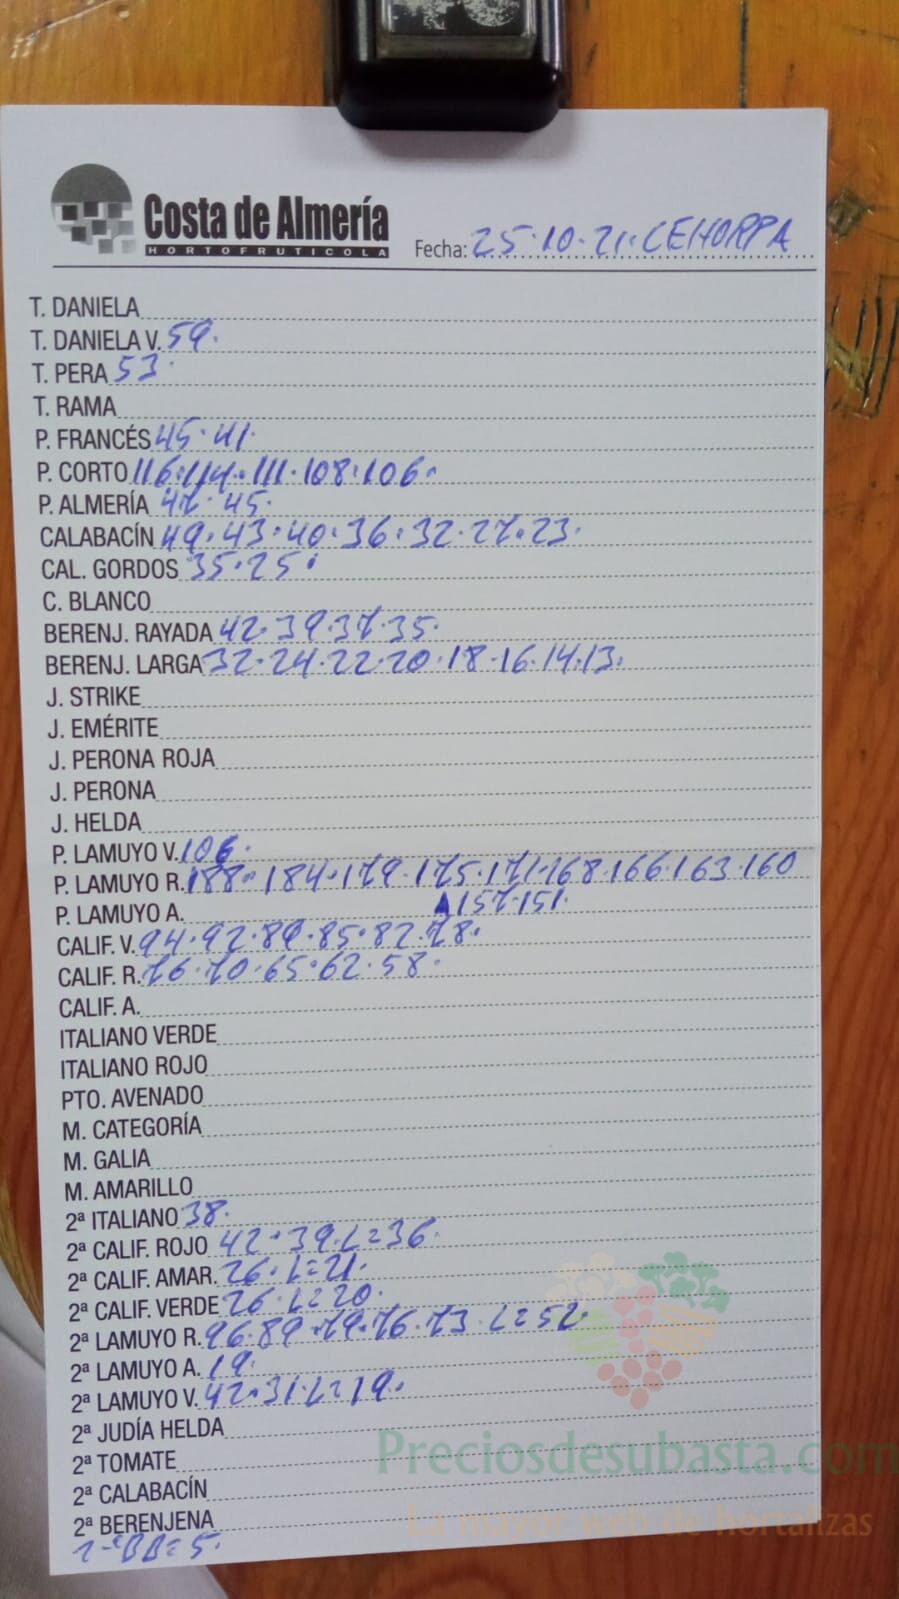 Costa de Almería
HORTOFRUTICOLA
Fecha: 25·10·21·CEHORPA
T. DANIELA
T. DANIELA V. 59·
T. PERA 53·
T. RAMA
P. FRANCÉS 45·41·
P. CORTO 116·114·111·108·106·
P. ALMERÍA 47·45·
CALABACÍN 49·43·40·36·32·27·23·
CAL. GORDOS 35·25·
C. BLANCO
BERENJ. RAYADA 42·39·37·35·
BERENJ. LARGA 32·24·22·20·18·16·14·13·
J. STRIKE
J. EMÉRITE
J. PERONA ROJA
J. PERONA
J. HELDA
P. LAMUYO V. 106·
P. LAMUYO R. 188·184·179·175·171·168·166·163·160
P. LAMUYO A. 157·151·
CALIF. V. 94·92·89·85·82·78·
CALIF. R. 76·70·65·62·58·
CALIF. A.
ITALIANO VERDE
ITALIANO ROJO
PTO. AVENADO
M. CATEGORÍA
M. GALIA
M. AMARILLO
2ª ITALIANO 38·
2ª CALIF. ROJO 42·39·L=36·
2ª CALIF. AMAR. 26·L=21·
2ª CALIF. VERDE 26·L=20·
2ª LAMUYO R. 96·89·79·76·73·L=52·
2ª LAMUYO A. 19·
2ª LAMUYO V. 42·31·L=19·
2ª JUDÍA HELDA
2ª TOMATE
Preciosdesubasta.com
2ª CALABACÍN
2ª BERENJENA
La mayor web de hortalizas
= 5·